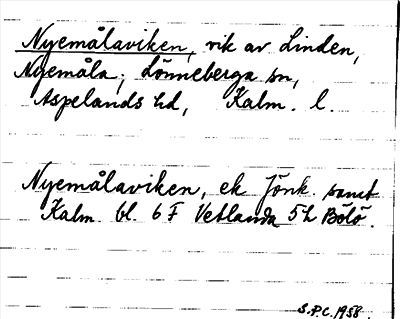 Nyemålaviken, vik av Linden,
Nyemåla, Lönneberga sn,
Aspelands hd, Kalm. l.
Nyemålaviken, ek Jönk. samt
Kalm. bl. 6 F Vetlanda 5 h Bölö.
S.P.C. 1958.